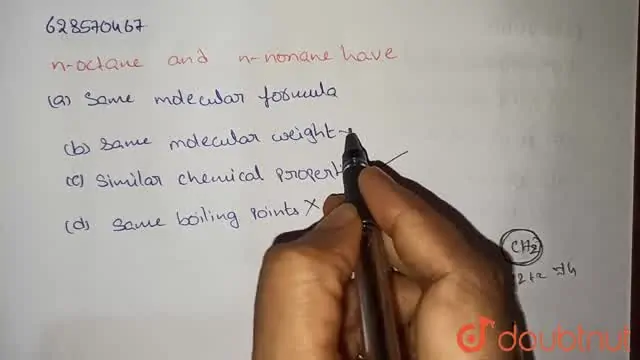 628570467
n-octane and n-nonane have
(a) Same molecular formula
(b) Same molecular weight
(c) Similar chemical propert
(d) Same boiling points ×
CH2
12+2 =14
doubtnut